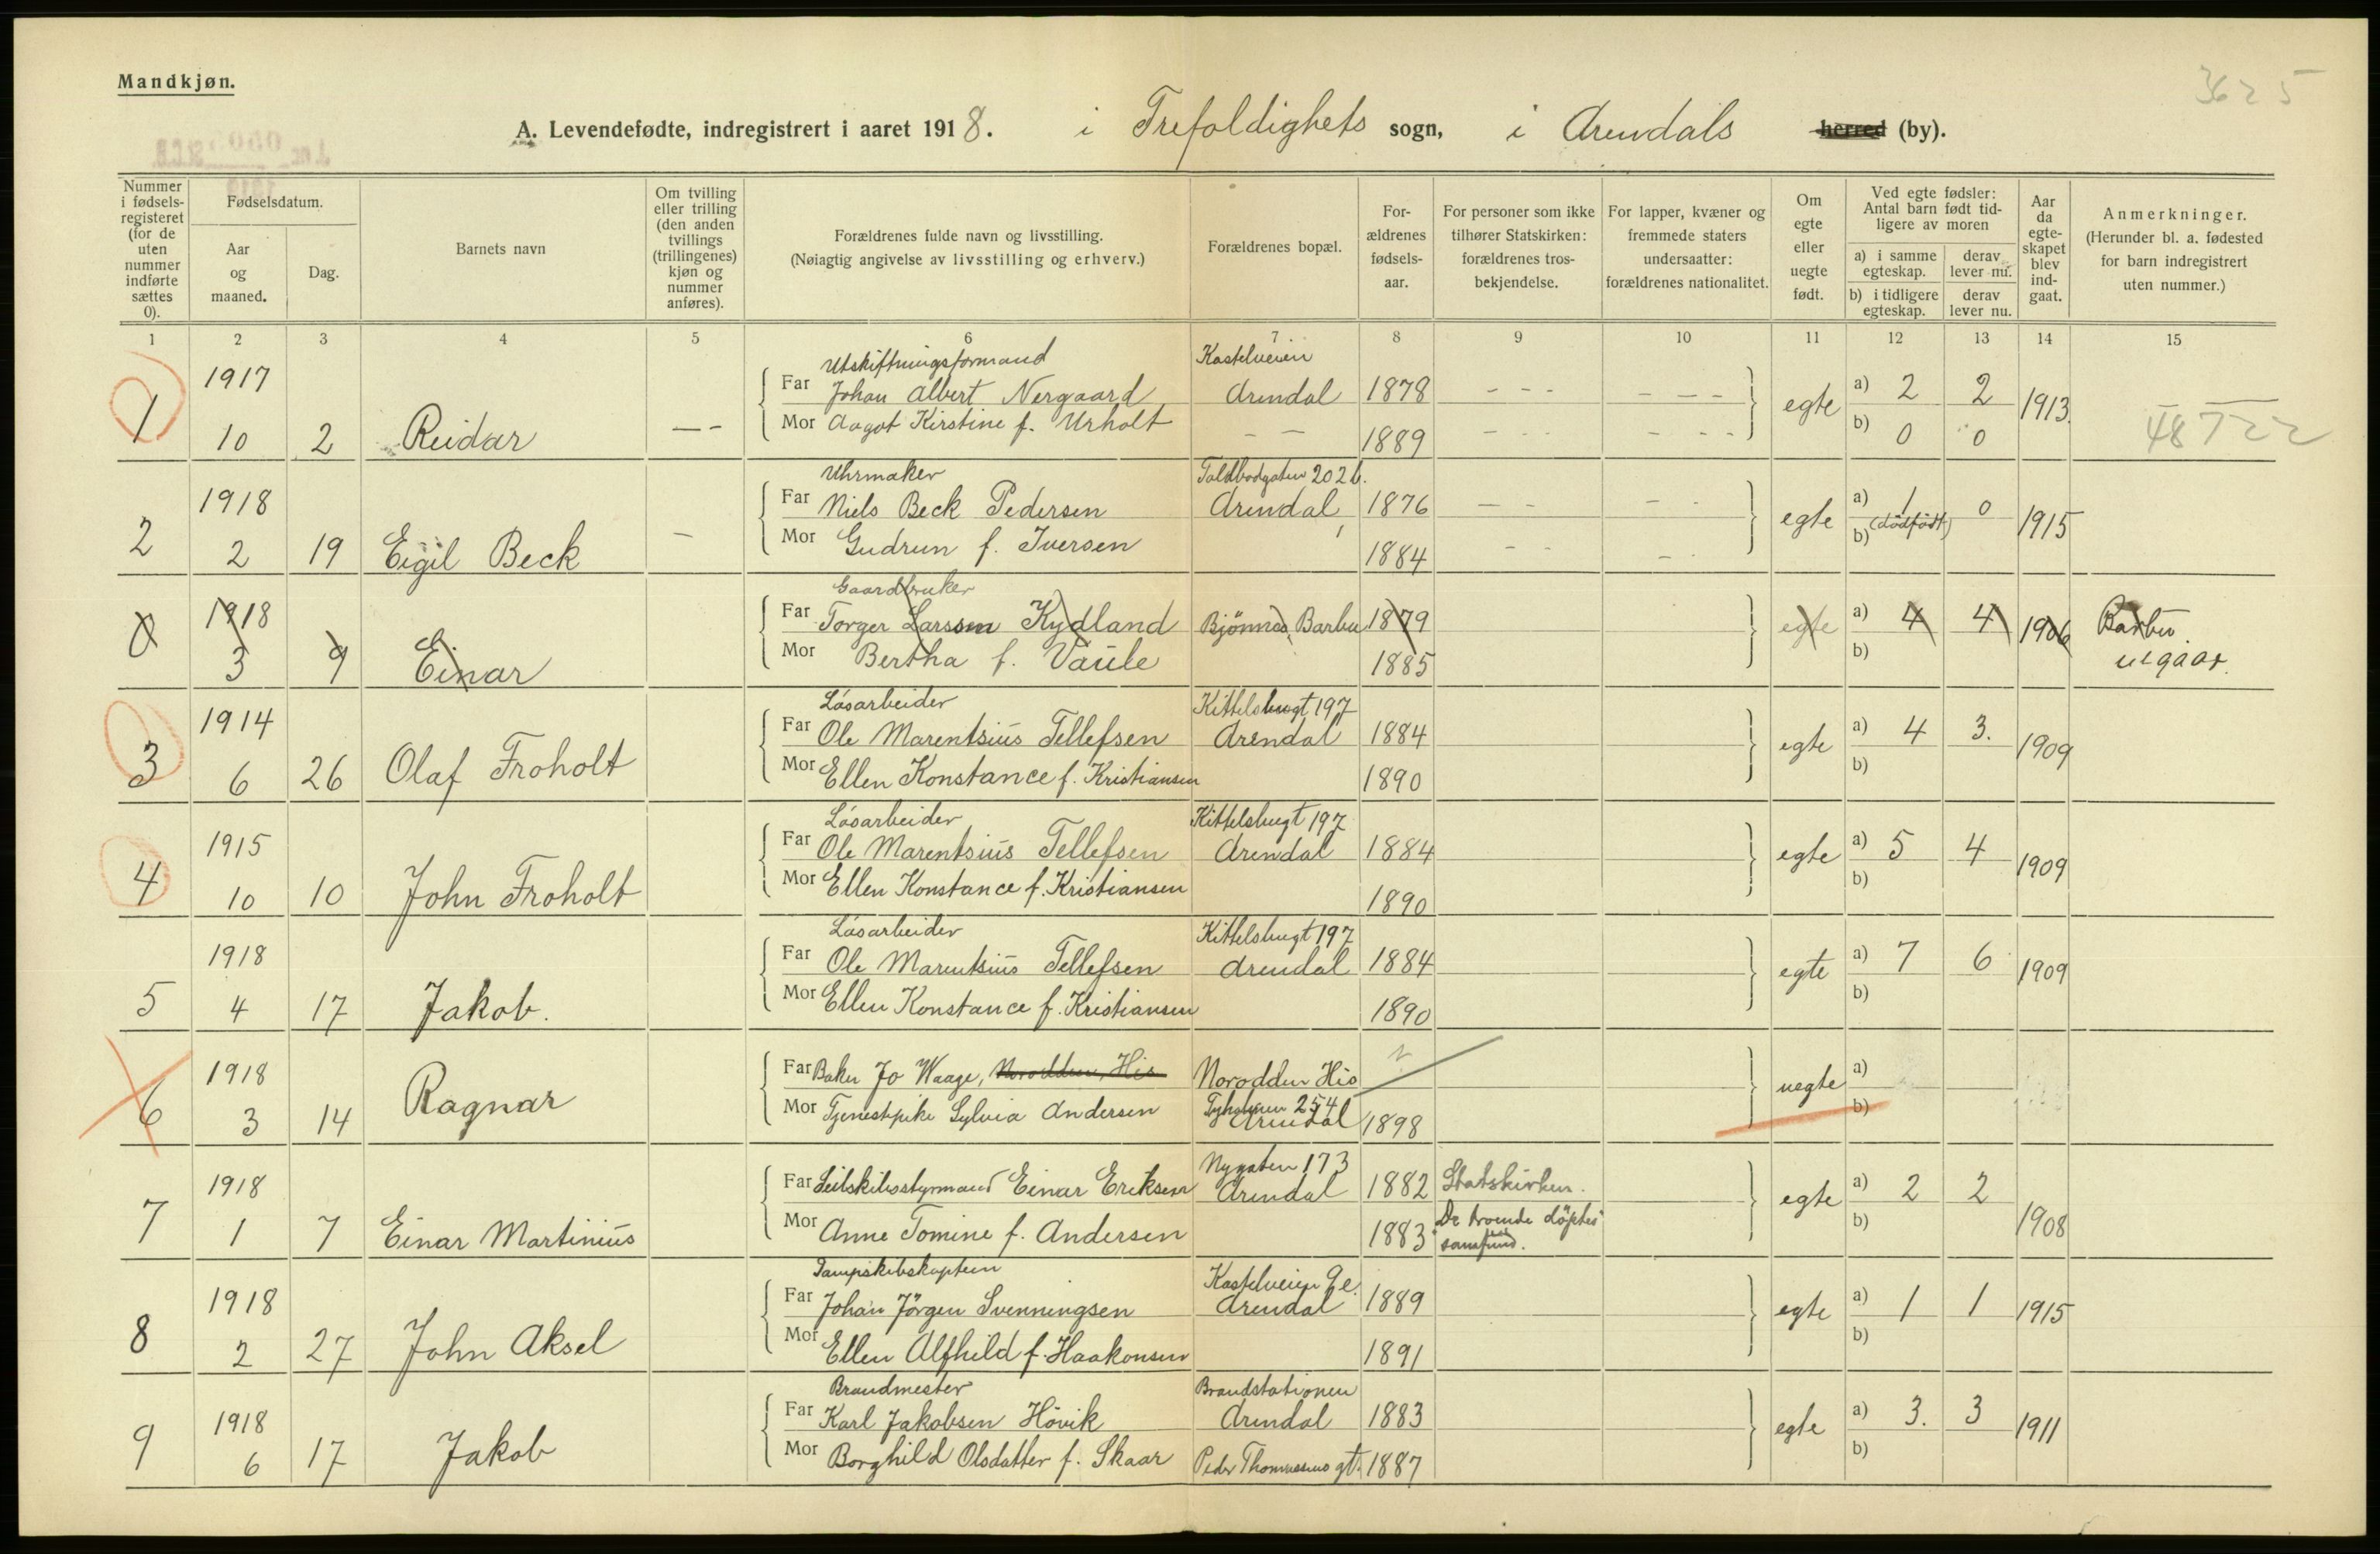 Mandkjøn.
3625
A. Levendefødte, indregistrert i aaret 1918. i Trefoldighets sogn, i Arendals herred (by).
Nummer i fødsels-registeret (for de uten nummer indførte sættes 0).
Fødselsdatum.
Aar og maaned.
Dag.
Barnets navn
Om tvilling eller trilling (den anden tvillings (trillingenes) kjøn og nummer anføres).
Forældrenes fulde navn og livsstilling.
(Nøiagtig angivelse av livsstilling og erhverv.)
Forældrenes bopæl.
For-ældrenes fødsels-aar.
For personer som ikke tilhører Statskirken: forældrenes tros-bekjendelse.
For lapper, kvæner og fremmede staters undersaatter: forældrenes nationalitet.
Om egte eller uegte født.
Ved egte fødsler: Antal barn født tid-ligere av moren
a) i samme egteskap. derav lever nu.
b) i tidligere egteskap. derav lever nu.
Aar da egte-skapet blev ind-gaat.
Anmerkninger.
(Herunder bl. a. fødested for barn indregistrert uten nummer.)
1 2 3 4 5 6 7 8 9 10 11 12 13 14 15
Utskiftningsformand Kastelveien
1917 Far Johan Albert Nergaard Arendal 1878 - - - - - - a) 2 2
1 10 2 Reidar - - Mor Aagot Kirstine f. Urholt - - 1889 - - - - - - egte b) 0 0 1913. 48722
Uhrmaker Toldbodgaten 202 b.
1918 Far Niels Beck Pedersen Arendal 1876 - - - - a) 1 0
2 2 19 Eigil Beck - Mor Gudrun f. Iversen 1884 - - - - egte b) (dødfødt) 1915
Gaardbruker
1918 Far Torger Larssen Kydland Bjönnes, Barbu 1879 egte a) 4 4 1906 Barbu.
0 3 9 Einar Mor Bertha f. Vaule 1885 b) utgaar.
Løsarbeider Kittelsbugt 197
1914 Far Ole Marentsius Tellefsen Arendal 1884 a) 4 3.
3 6 26 Olaf Froholt Mor Ellen Konstance f. Kristiansen 1890 egte b) 1909
Løsarbeider Kittelsbugt 197
1915 Far Ole Marentsius Tellefsen Arendal 1884 a) 5 4
4 10 10 John Froholt Mor Ellen Konstance f. Kristiansen 1890 egte b) 1909
Løsarbeider Kittelsbugt 197
1918 Far Ole Marentsius Tellefsen Arendal 1884 a) 7 6
5 4 17 Jakob. Mor Ellen Konstance f. Kristiansen 1890 egte b) 1909
1918 Far Baker Jo Waage, Norodden, His Norodden His a)
6 3 14 Ragnar Mor Tjenestpike Sylvia Andersen Tyholmen 254 Arendal 1898 uegte b)
Nygaten 173
1918 Far Seilskibsstyrmand Einar Eriksen Arendal 1882 Statskirken. a) 2 2
7 1 7 Einar Martinius Mor Anne Tomine f. Andersen 1883 De troende döptes samfund. egte b) 1908
Dampskibskaptein Kastelveien 9e.
1918 Far Johan Jörgen Svenningsen Arendal 1889 a) 1 1
8 2 27 John Aksel Mor Ellen Alfhild f. Haakonsen 1891 egte b) 1915
Brandmester Brandstationen
1918 Far Karl Jakobsen Hövik Arendal 1883 a) 3. 3
9 6 17 Jakob Mor Borghild Olsdatter f. Skaar Peder Thomassens gt. 1887 egte b) 1911